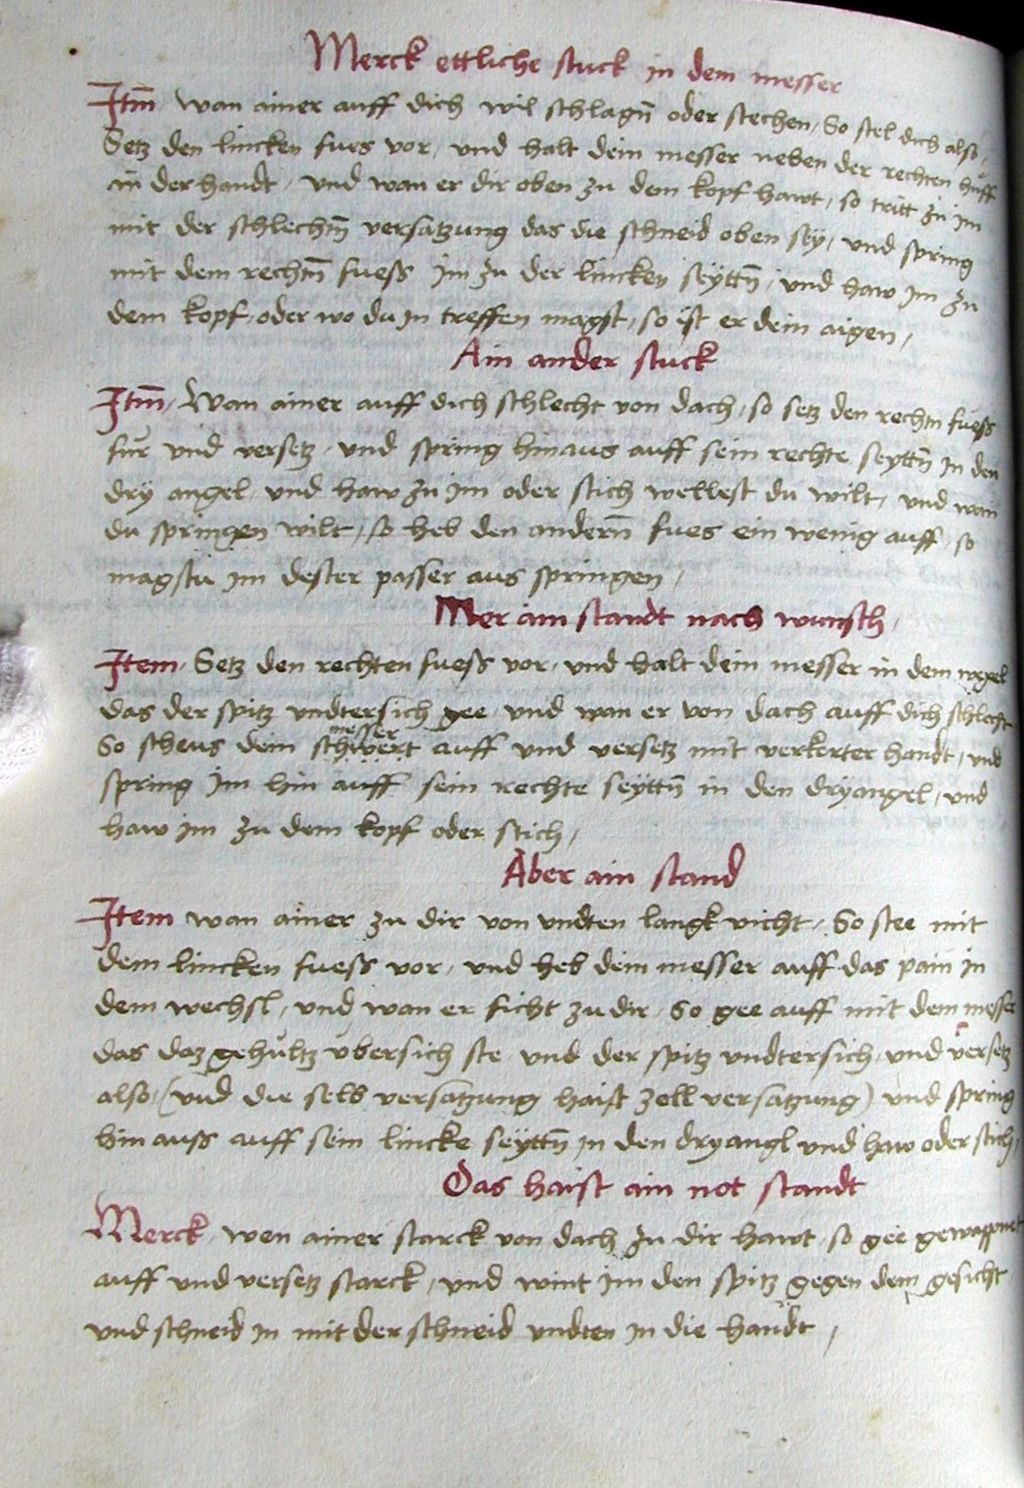 Merck ettliche stuck in dem messer
Itm̄ wan ainer auff dich wil schlagn̄ oder stechen, So stel dich also,
Setz den lincken fues vor, und halt dein messer neben der rechten huff
in der handt, und wan er dir oben zu dem kopf hawt, so tritt zu im
mit der schlechtn̄ versatzung das die schneid oben sey, und spring
mit dem rechtn̄ fuess im zu der lincken seyttn̄, und haw im zu
dem kopf, oder wo du in treffen magst, so ist er dein aigen,
Ain ander stuck
Itm̄, Wan ainer auff dich schlecht von dach, so setz den rechtn fuess
fur und versetz, und spring hinaus auff sein rechte seyttn̄ in den
dry angel, und haw zu im oder stich wellest du wilt, und wan
du springen wilt, so heb den andern̄ fues ein wenig auff, so
magstu im dester passer aus springen,
Mer ain standt nach wunsch,
Item, Setz den rechten fuess vor, und halt dein messer in dem
das der spitz undtersich gee, und wan er von dach auff dich schlecht
messer
So scheus dein schwert auff und versetz mit verkerter handt, und
spring im hin auff sein rechte seyttn̄ in den dryangel, und
haw im zu dem kopf oder stich,
Aber ain stand
Item wan ainer zu dir von undten langk vicht, So stee mit
dem lincken fuess vor, und heb dein messer auff das pain in
dem wechsl, und wan er ficht zu dir, So gee auff mit dem messer
das daz gehultz ubersich ste, und der spitz undtersich, und versetz
also, (und die selb versatzung haist zell versatzung) und spring
hin auss auff sein lincke seyttn̄ in den dryangl und haw oder stich,
Das haist ain not standt
Merck, wen ainer starck von dach zu dir hawt, so gee gewappnet
auff und versetz starck, und wint im den spitz gegen dem gesicht
und schneid in mit der schneid undten in die handt,